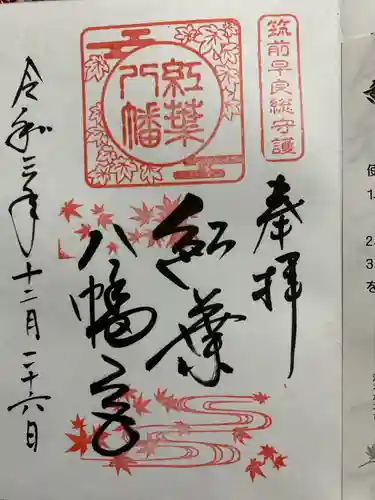 筑前早良総守護
奉拝
紅葉
八幡
紅葉
八幡宮
令和三年十二月二十六日
使
1.
2.
3
を